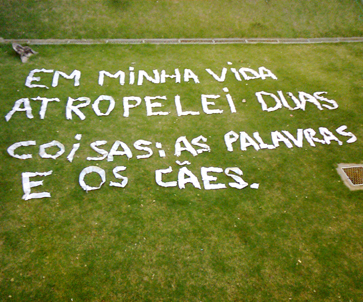 EM MINHA VIDA
ATROPELEI DUAS
COISAS: AS PALAVRAS
E OS CÃES.